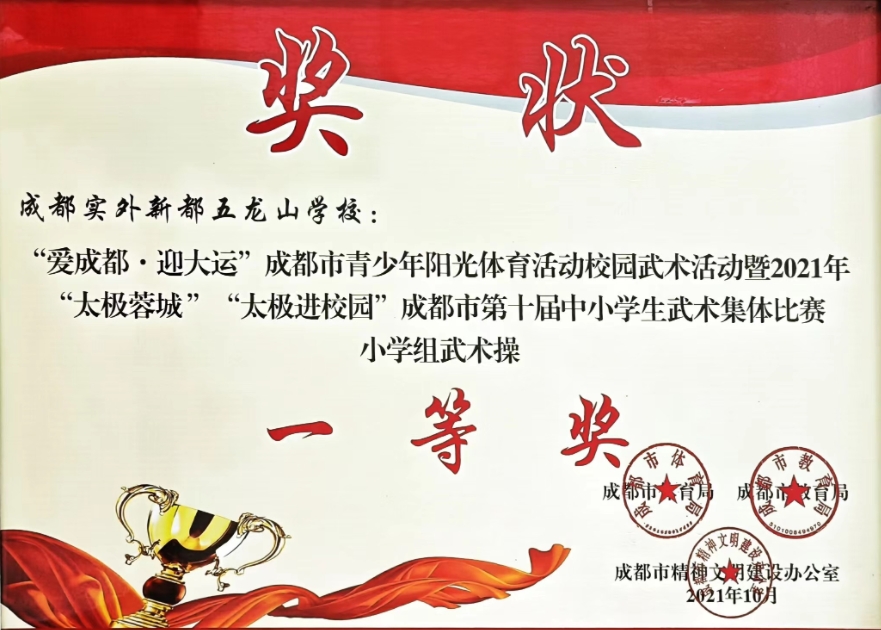 奖状
成都实外新都五龙山学校：
“爱成都·迎大运”成都市青少年阳光体育活动校园武术活动暨2021年
“太极蓉城”“太极进校园”成都市第十届中小学生武术集体比赛
小学组武术操
一等奖
成都市体育局 成都市教育局
成都市体育局
成都市教育局
成都市精神文明建设办公室
2021年10月